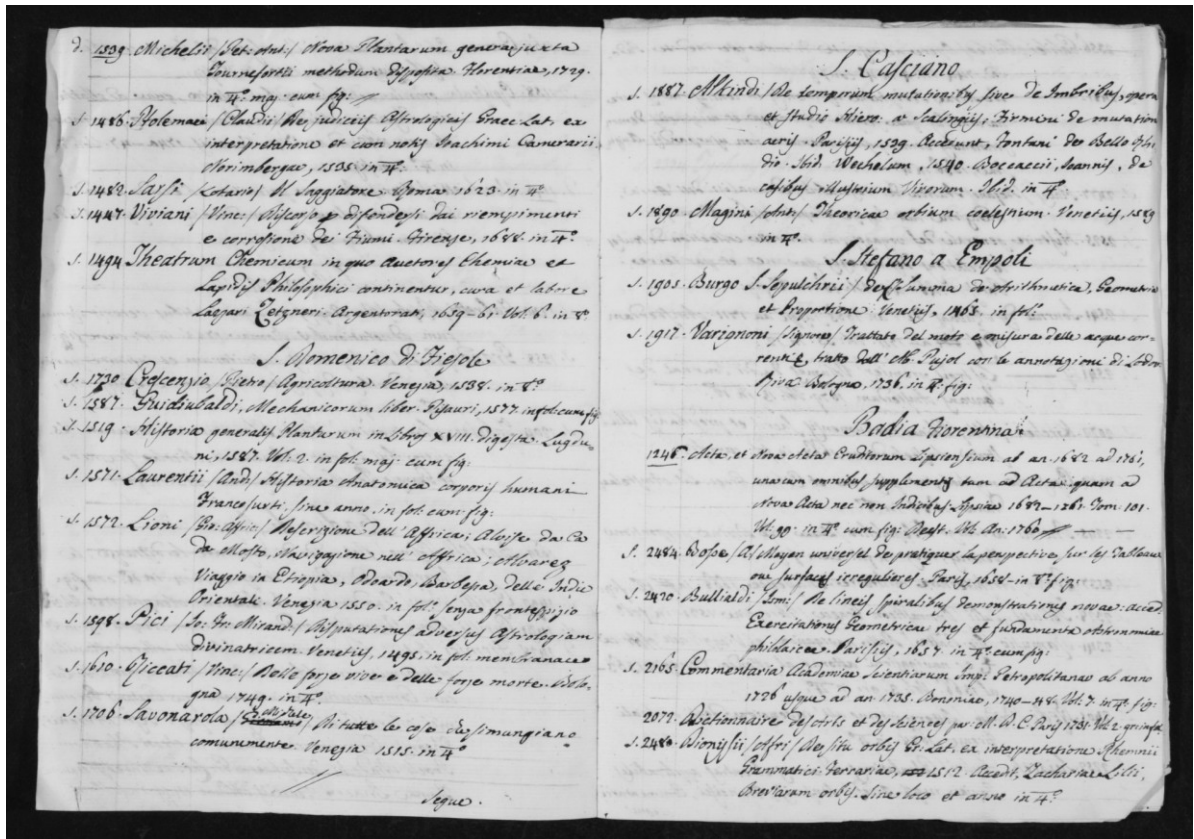 1539. Michelii /Pet: Ant:/ Nova Plantarum genera juxta
Tournefortii methodum disposita Florentiae, 1729.
in 4.° maj. cum fig:
S. 1486. Ptolemaei /Claudii/ De judiciis Astrologicis Graec. Lat. ex
interpretatione et cum notis Joachimi Camerarii
Norimbergae, 1535. in 4.°
S. 1482. Sarsi /Lotario/ Il Saggiatore. Roma 1623. in 4.°
S. 1447. Viviani /Vinc:/ Discorso p difendersi dai riempimenti
e corrosione dei Fiumi. Firenze, 1688. in 4.°
S. 1494. Theatrum Chemicum in quo Auctores Chemiae et
Lapidis Philosophici continentur, cura et labore
Lazari Zetzneri. Argentorati, 1659-61. Vol. 6. in 8.°
S. Domenico di Fiesole
S. 1730. Crescenzio /Pietro/ Agricoltura. Venezia, 1538. in 8.°
S. 1587. Guidiubaldi, Mechanicorum liber. Pisauri, 1577. in fol: cum fig
S. 1519. Historia generalis Plantarum in Libros XVIII. digesta. Lugdu-
ni, 1587. Vol. 2. in fol: maj. cum fig:
S. 1571. Laurentii /And:/ Historia Anatomica corporis humani
Francofurti. sine anno. in fol. cum fig:
S. 1572. Lioni /Gio: Affric:/ Descrizione dell' Affrica; Aloise da Ca
da Mosto, Navigazione nell' Affrica; Alvarez
Viaggio in Etiopia, Odoardo, Barbessa, delle Indie
Orientale. Venezia 1550. in fol.° senza frontespizio
S. 1598. Pici /Jo: Fr: Mirand:/ Disputationes adversus Astrologiam
divinatricem. Venetiis, 1495. in fol: membranaceo
S. 1610. Riccati /Vinc:/ Delle forze vive e delle forze morte. Bolo-
gna 1749. in 4.°
S. 1706. Savonarola / / Di tutte le cose che si mangiano
comunemente. Venezia 1515. in 4.°
Segue.
S. Casciano
S. 1887. Alkindi /De temporum mutationibus sive de Imbribus, opera
et studio Hiero: a Scalingiis; Firmini de mutation
aeris. Parisiis, 1539. Accedunt, Fontani de Bello Rho-
dio. Ibid. Wechelum, 1540. Boccaccii, Joannis, de
casibus Illustrium Virorum. Ibid. in 4.°
S. 1890. Magini /Ant:/ Theoricae orbium coelestium. Venetiis, 1589
in 4.°
S. Stefano a Empoli
S. 1905. Burgo S. Sepulchrii /de/ Summa de Arithmetica, Geometria
et Proportione. Venetiis, 1465. in fol:
S. 1917. Varignoni /Signore/ Trattato del moto e misura delle acque cor-
renti, tratto dall' Ab. Pujol con le annotazioni di
Bologna, 1736. in 4.° fig:
Badia Fiorentina
1246. Acta, et Nova Acta Eruditorum Lipsiensium ab an. 1682 ad 1761,
una cum omnibus supplementis tum ad Acta quam a
Nova Acta nec non Indicibus. Lipsiae 1682-1761. Tom. 101.
Vol. 99. in 4.° cum fig: Deest. Vol. An. 1760
S. 2484. Bosse /A/ Moyen universel de pratiquer la perspective sur les Tableaux
ou surfaces irregulieres. Paris, 1658. in 8.° fig:
S. 2420. Bullialdi /Ism:/ De lineis spiralibus demonstrationes novae. Acced.
Exercitationes Geometricae tres et fundamenta Astronomiae
philolaicae. Parisiis, 1657. in 4.° cum fig:
S. 2165. Commentaria Academiae Scientiarum Imp: Petropolitanae ab anno
1726 usque ad an. 1735. Bononiae, 1740-48. Vol. 7. in 4.° fig:
2072. Dictionnaire des Arts et des Sciences par M. D. C. Paris 1731. Vol. 2. gr. in fol.
S. 2480. Dionysii /Afri/ De situ orbis Gr: Lat. ex interpretatione Rhemnii
Grammatici. Ferrariae, 1512. Accedit, Zachariae Lilii,
Breviarum orbis. Sine loco et anno in 4.°